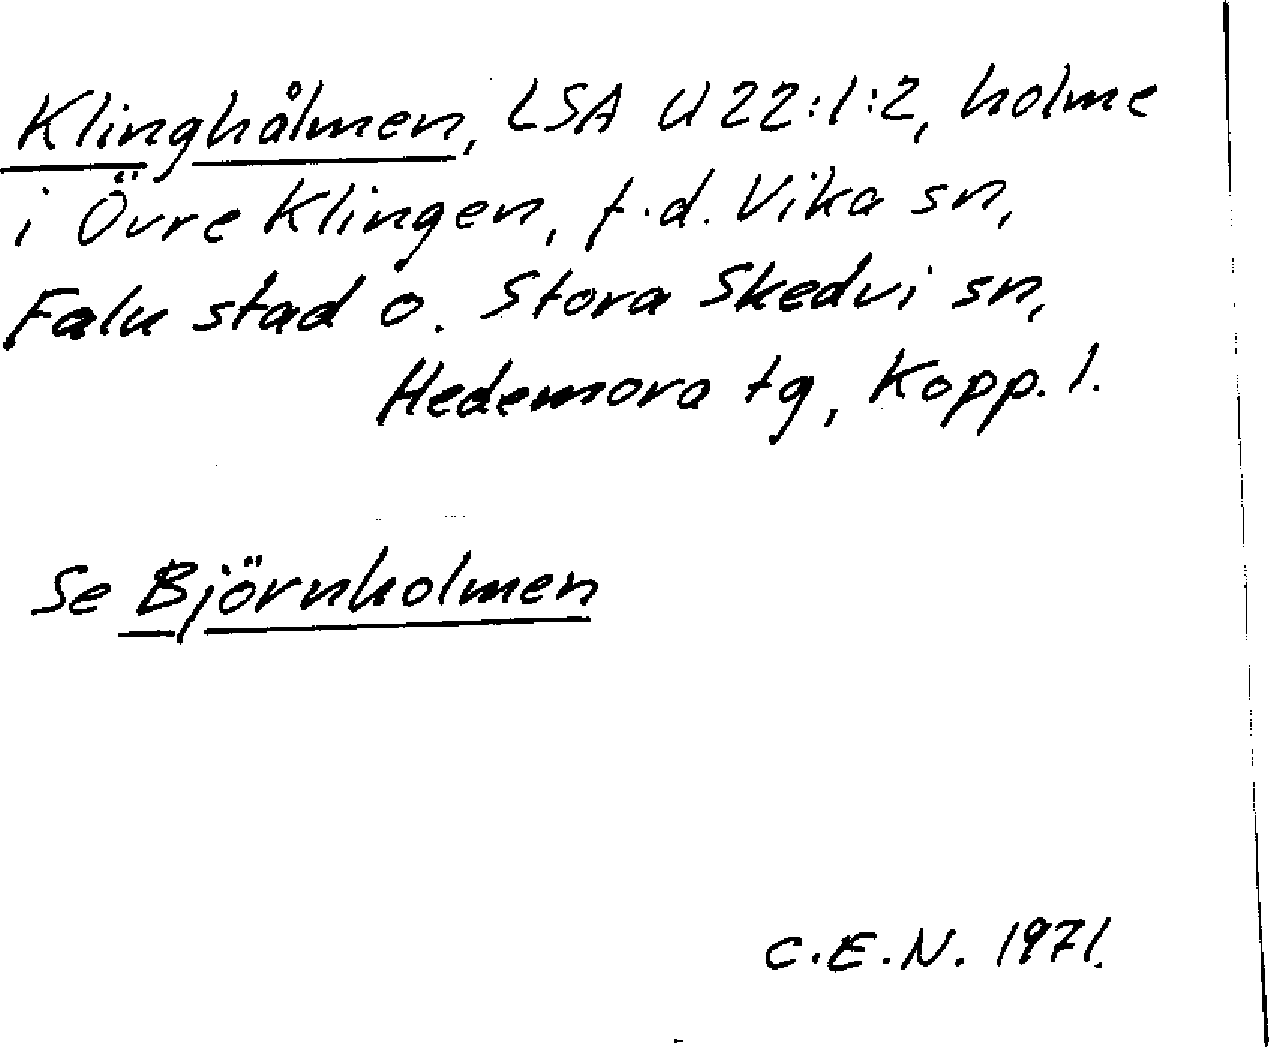 Klinghålmen, LSA U 22:1:2, holme
i Övre Klingen, f.d. Vika sn,
Falu stad o. Stora Skedvi sn,
Hedemora tg, Kopp. l.
Se Björnholmen
C.E.N. 1971.